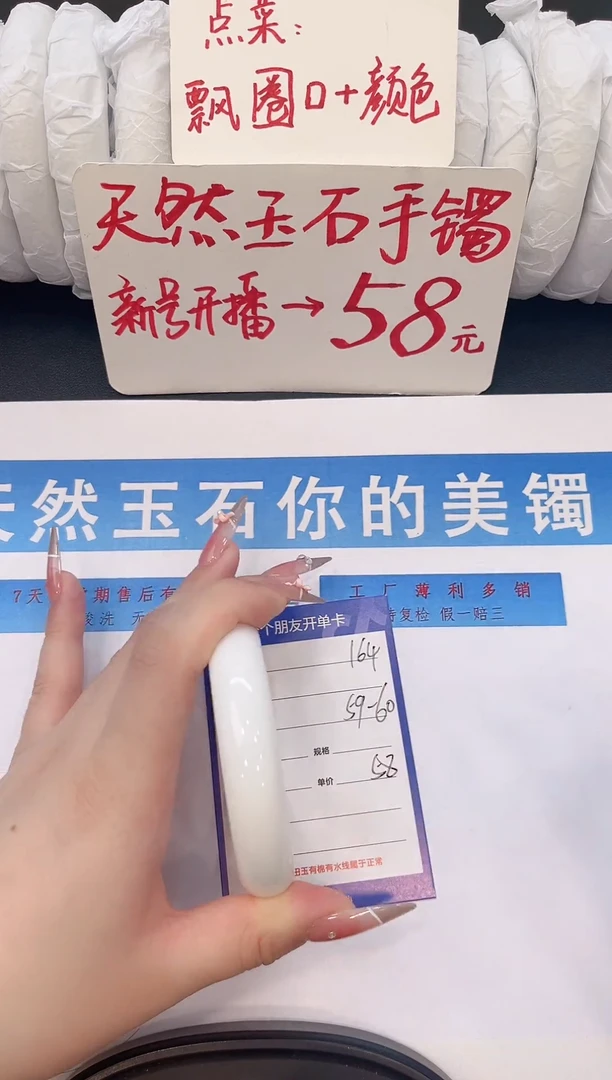 点菜：
飘圈口+颜色
天然玉石手镯
新号开播→58元
天然玉石你的美镯
7天
期售后有
工厂薄利多销
酸洗 无
持复检 假一赔三
个朋友开单卡
164
59-60
规格
单价 58
丑玉有棉有水线属于正常